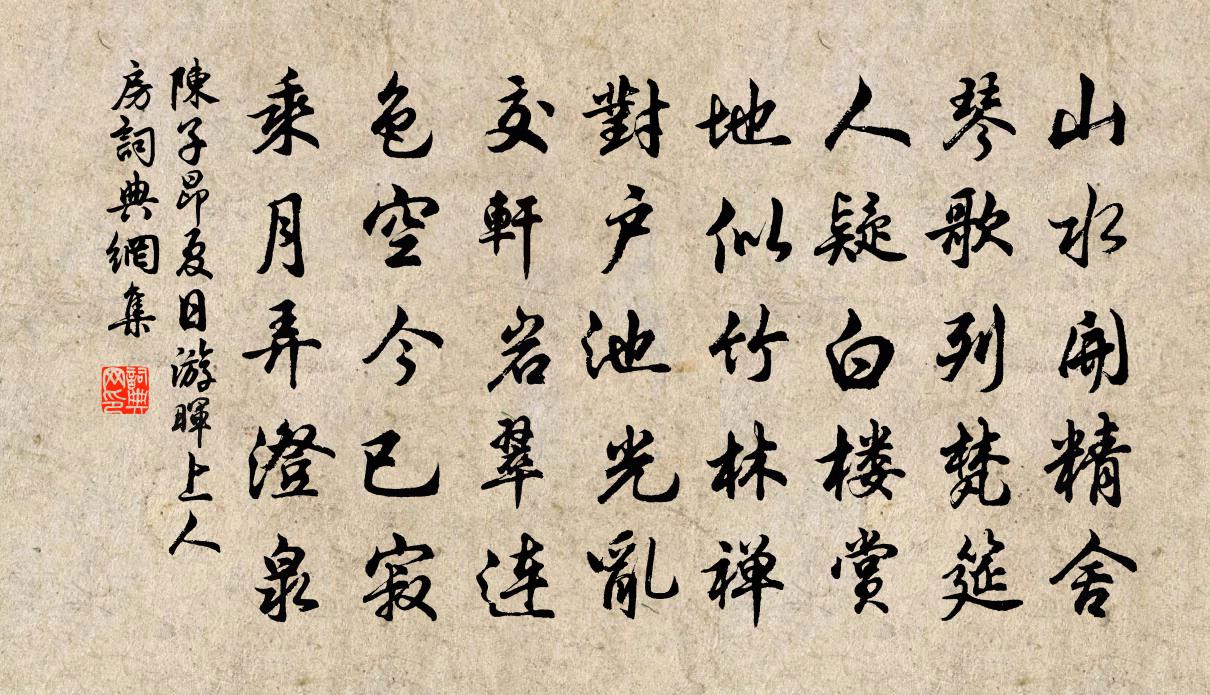 山水開精舍
琴歌列梵筵
人疑白楼賞
地似竹林禅
對户池光亂
交軒岩翠連
色空今已寂
乘月弄澄泉
陳子昂夏日游暉上人
房詞典網集
詞典
网印